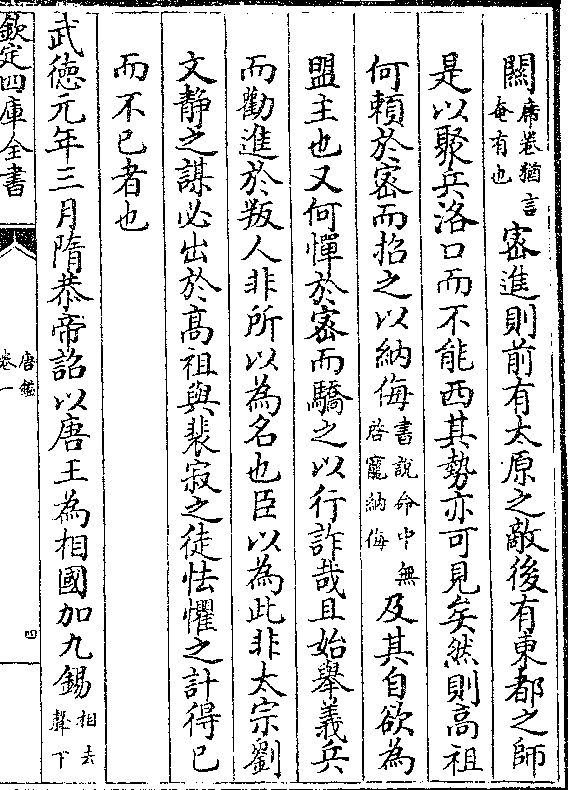 關席卷猶言奄有也密進則前有太原之敵後有東都之師
是以聚兵洛口而不能西其勢亦可見矣然則高祖
何頼於密而招之以納侮書説命中無啓寵納侮及其自欲為
盟主也又何憚於密而驕之以行詐哉且始舉義兵
而勸進於叛人非所以為名也臣以為此非太宗劉
文静之謀必出於髙祖與裴寂之徒怯懼之計得已
而不已者也
武徳元年三月隋恭帝詔以唐王為相國加九錫相去聲下
欽定四庫全書
唐鑑
卷一
四